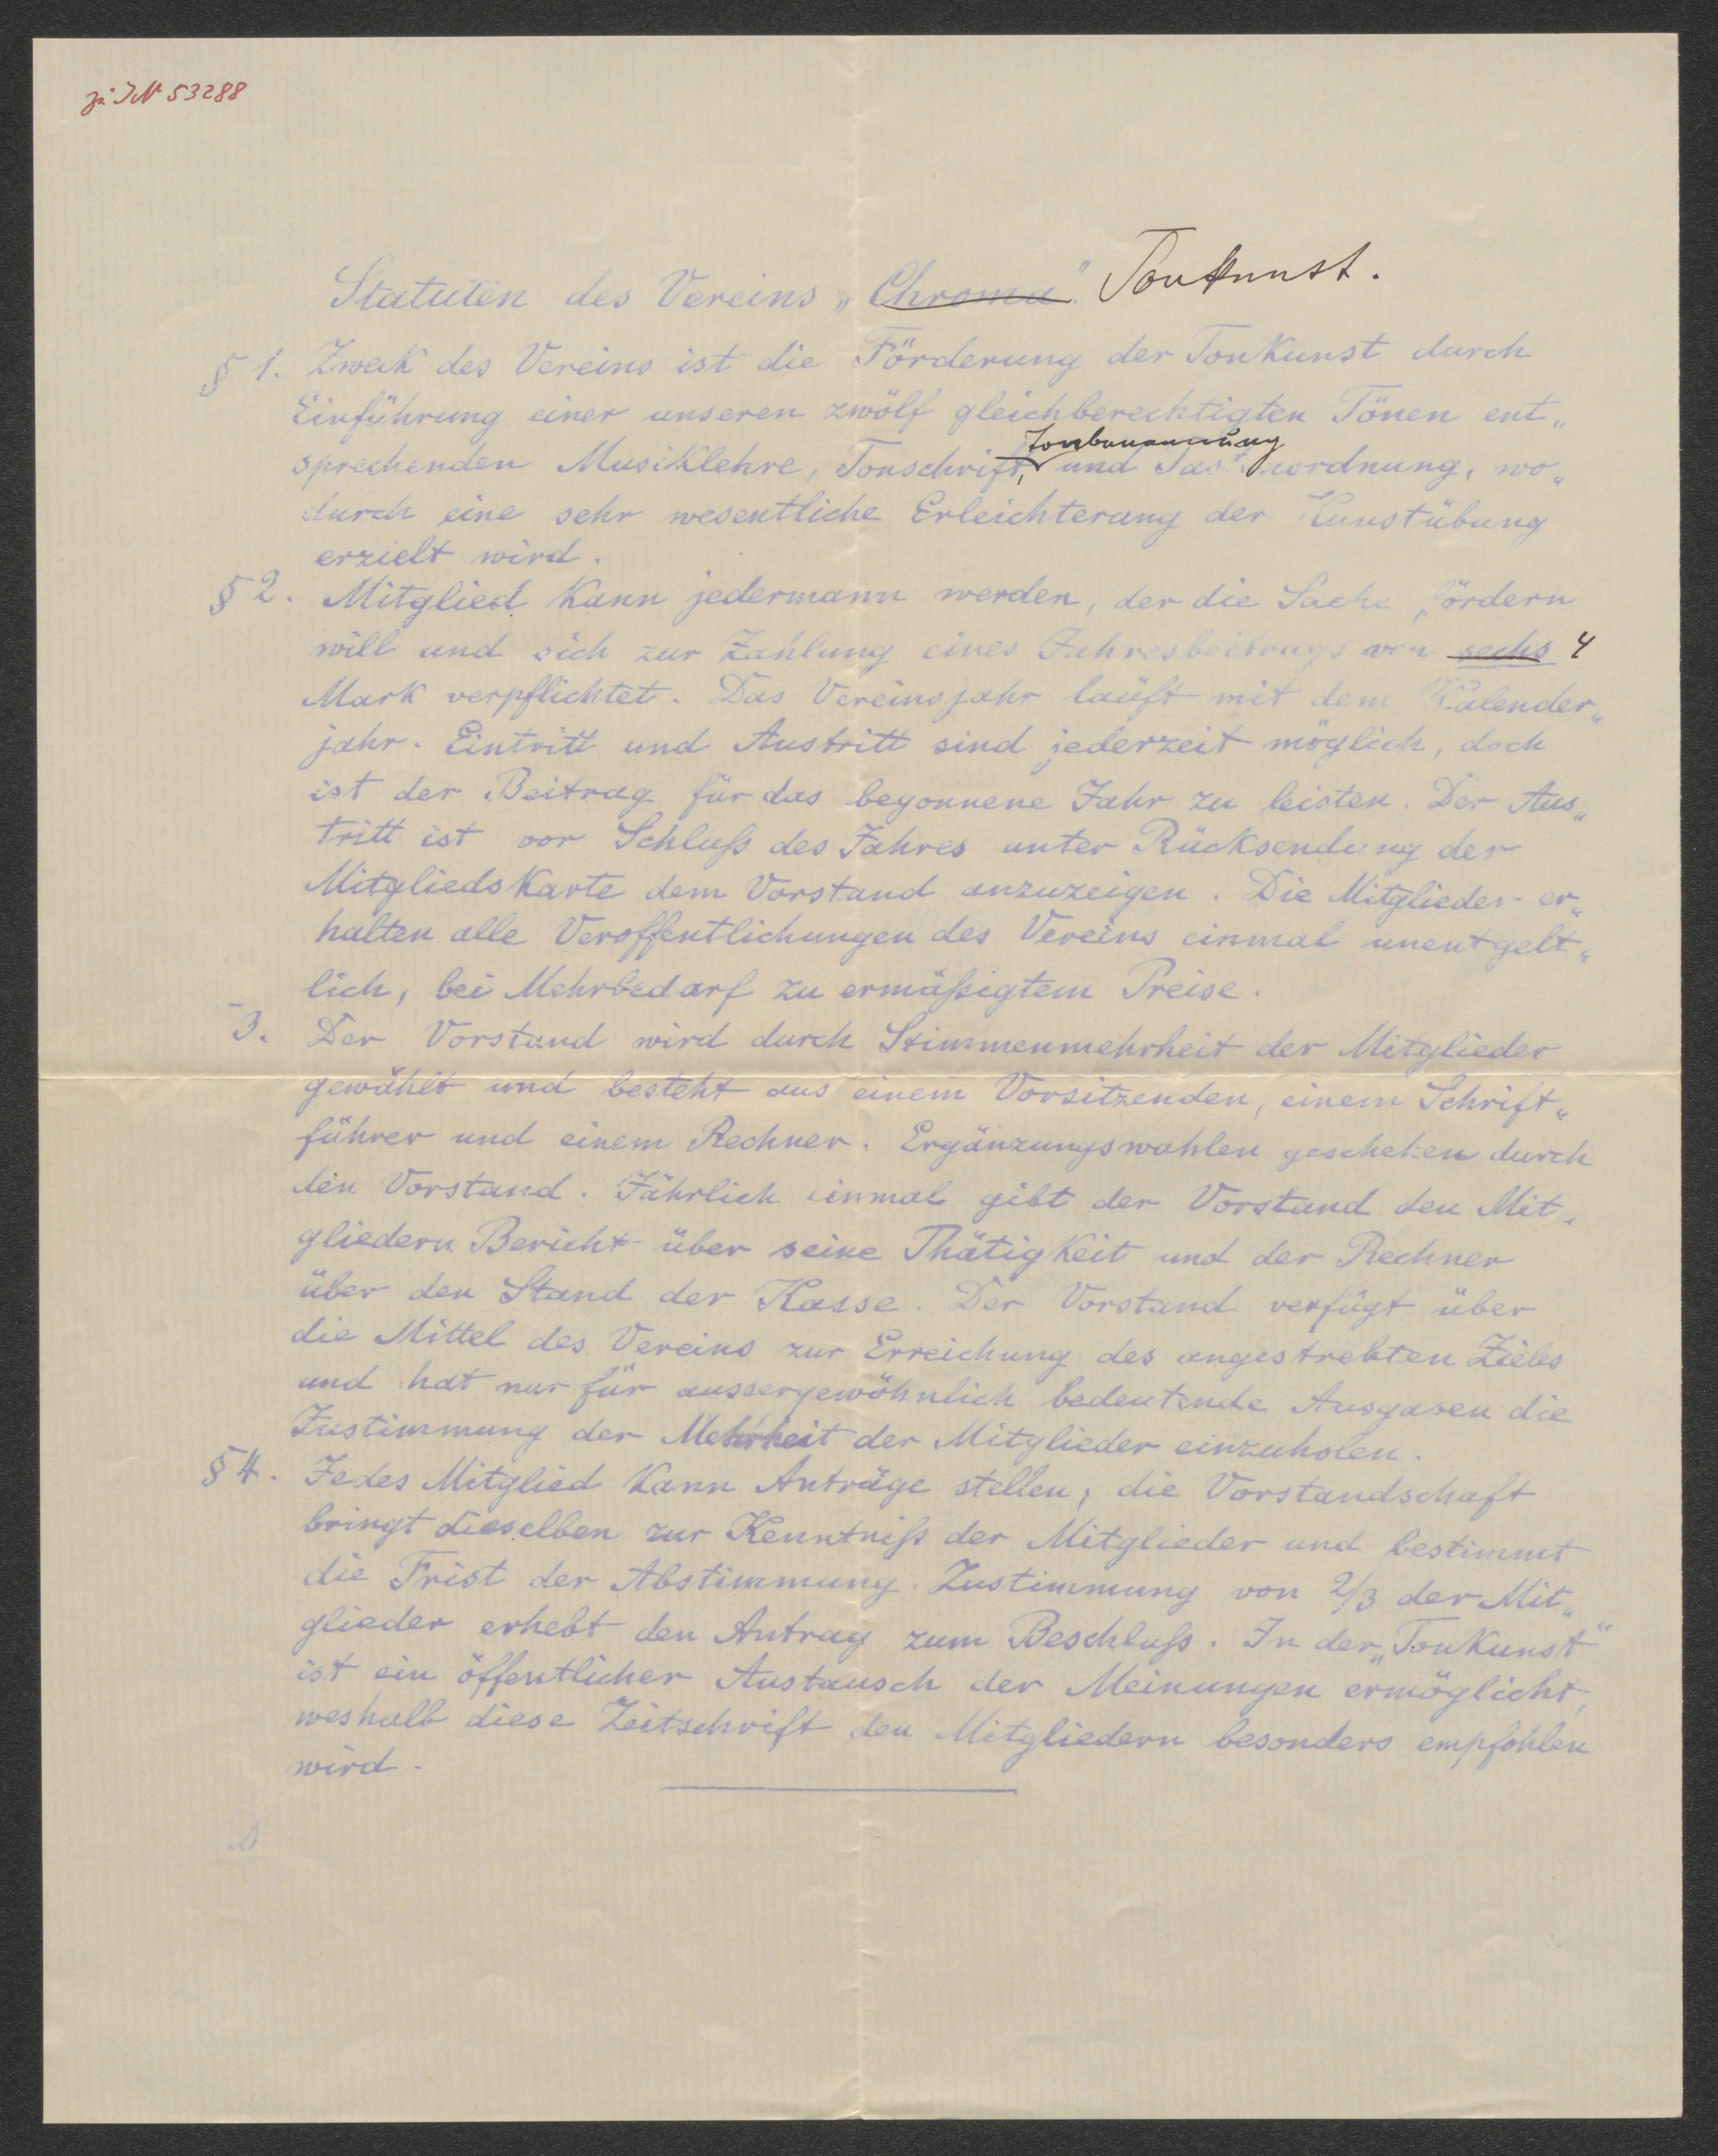 zu JN 53288
Statuten des Vereins „Chroma" Tonkunst.
§ 1. Zweck des Vereins ist die Förderung der Tonkunst durch
Einführung einer unseren zwölf gleichberechtigten Tönen ent„
Tonbenennung
sprechenden Musiklehre, Tonschrift, und Tastanordnung, wo„
durch eine sehr wesentliche Erleichterung der Kunstübung
erzielt wird.
§ 2. Mitglied kann jedermann werden, der die Sache fördern
will und sich zur Zahlung eines Jahresbeitrags von sechs 4
Mark verpflichtet. Das Vereinsjahr läuft mit dem Kalender„
jahr. Eintritt und Austritt sind jederzeit möglich, doch
ist der Beitrag für das begonnene Jahr zu leisten. Der Aus„
tritt ist vor Schluß des Jahres unter Rücksendung der
Mitgliedskarte dem Vorstand anzuzeigen. Die Mitglieder er„
halten alle Veroffentlichungen des Vereins einmal unentgelt„
lich, bei Mehrbedarf zu ermäßigtem Preise.
3. Der Vorstand wird durch Stimmenmehrheit der Mitglieder
gewählt und besteht aus einem Vorsitzenden, einem Schrift„
führer und einem Rechner. Ergänzungswahlen geschehen durch
den Vorstand. Jährlich einmal gibt der Vorstand den Mit„
gliedern Bericht über seine Thätigkeit und der Rechner
über den Stand der Kasse. Der Vorstand verfügt über
die Mittel des Vereins zur Erreichung des angestrebten Zieles
und hat nur für aussergewöhnlich bedeutende Ausgaben die
Zustimmung der Mehrheit der Mitglieder einzuholen.
§ 4. Jedes Mitglied kann Anträge stellen; die Vorstandschaft
bringt dieselben zur Kenntniß der Mitglieder und bestimmt
die Frist der Abstimmung. Zustimmung von 2/3 der Mit„
glieder erhebt den Antrag zum Beschluß. In der „Tonkunst"
ist ein öffentlicher Austausch der Meinungen ermöglicht,
weshalb diese Zeitschrift den Mitgliedern besonders empfohlen
wird.
D